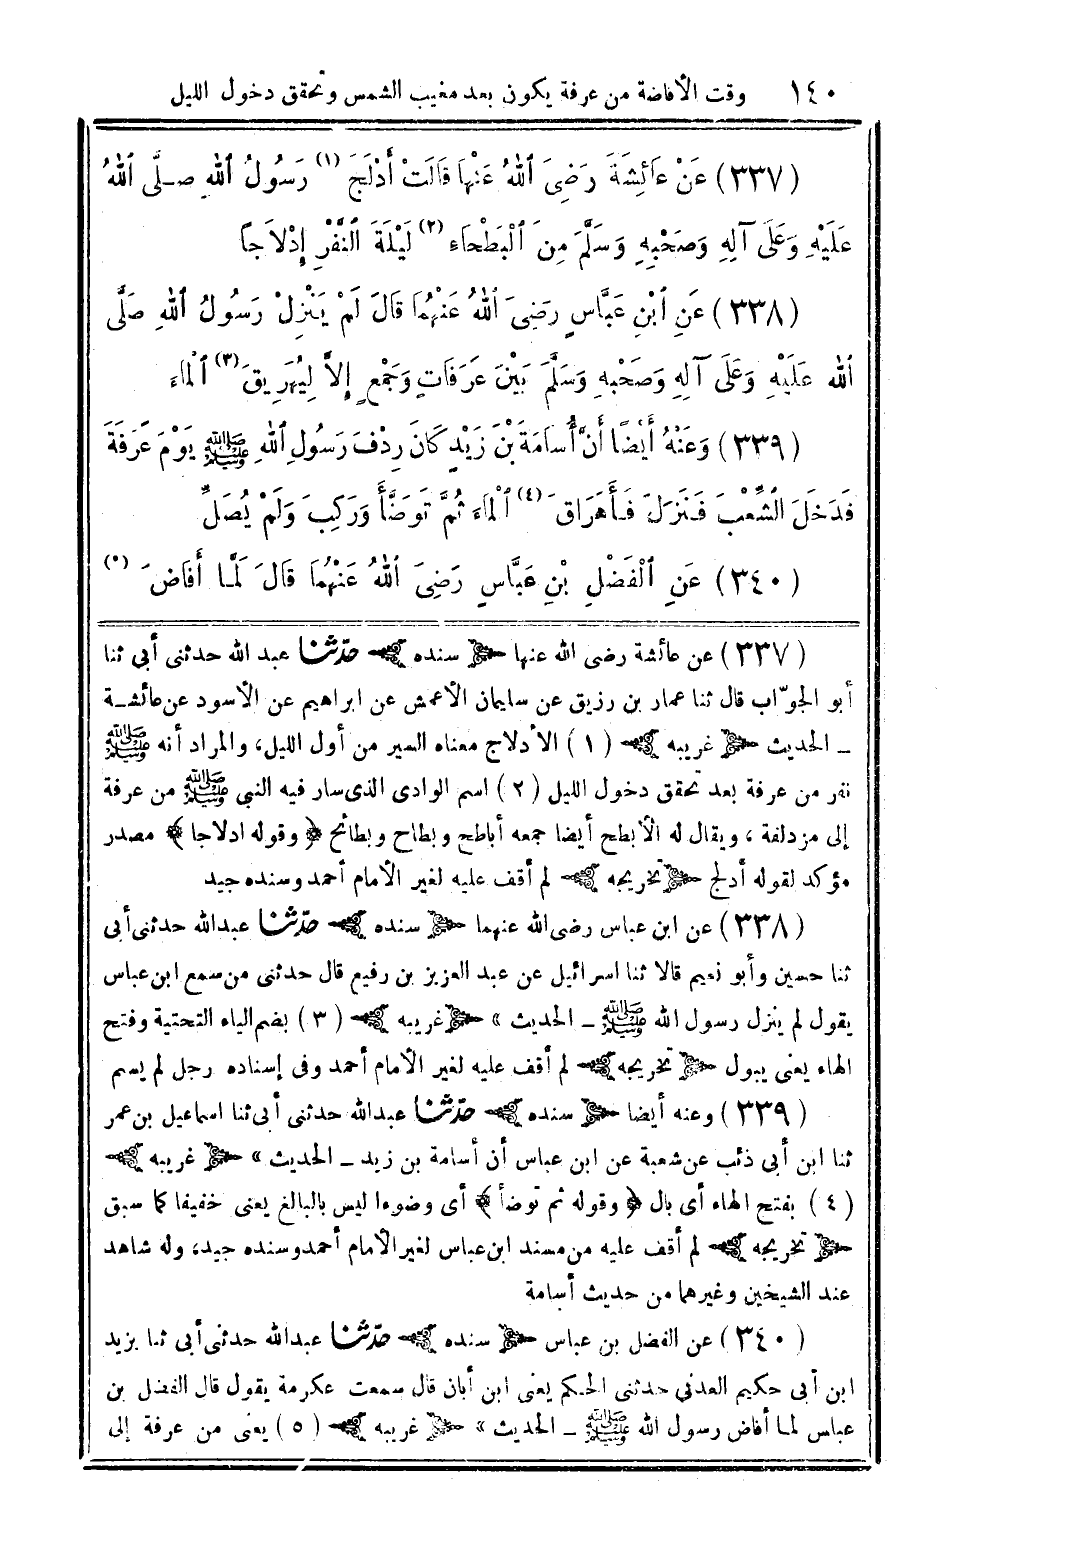 ١٤٠ وقت الأفاضة من عرفة يكون بعد مغيب الشمس وتحقق دخول الليل
(٣٣٧) عَنْ عَائِشَةَ رَضِيَ اللهُ عَنْهَا قَالَتْ أَدْلَجَ (١) رَسُولُ اللهِ صَلَّى اللهُ
عَلَيْهِ وَعَلَى آلِهِ وَصَحْبِهِ وَسَلَّمَ مِنَ الْبَطْحَاءِ (٢) لَيْلَةَ النَّفْرِ إِدْلَاجًا
(٣٣٨) عَنِ ابْنِ عَبَّاسٍ رَضِيَ اللهُ عَنْهُمَا قَالَ لَمْ يَنْزِلْ رَسُولُ اللهِ صَلَّى
اللهُ عَلَيْهِ وَعَلَى آلِهِ وَصَحْبِهِ وَسَلَّمَ بَيْنَ عَرَفَاتٍ وَجَمْعٍ إِلاَّ لِيُهَرِيقَ (٣) الْمَاءَ
(٣٣٩) وَعَنْهُ أَيْضًا أَنَّ أُسَامَةَ بْنَ زَيْدٍ كَانَ رِدْفَ رَسُولِ اللهِ ﷺ يَوْمَ عَرَفَةَ
فَدَخَلَ الشِّعْبَ فَنَزَلَ فَأَهَرَاقَ (٤) الْمَاءَ ثُمَّ تَوَضَّأَ وَرَكِبَ وَلَمْ يُصَلِّ
(٣٤٠) عَنِ الْفَضْلِ بْنِ عَبَّاسٍ رَضِيَ اللهُ عَنْهُمَا قَالَ لَمَّا أَفَاضَ (٥)
(٣٣٧) عن عائشة رضى الله عنها ﴿ سنده ﴾ حدّثنا عبد الله حدثنى أبى ثنا
أبو الجوّاب قال ثنا عمار بن رزيق عن سليمان الأعمش عن ابراهيم عن الأسود عن عائشة
ـ الحديث ﴿ غريبه ﴾ (١) الأدلاج معناه السير من أول الليل، والمراد أنه ﷺ
نفر من عرفة بعد تحقق دخول الليل (٢) اسم الوادى الذى سار فيه النبى ﷺ من عرفة
إلى مزدلفة، ويقال له الأبطح أيضا جمعه أباطح وبطاح وبطائح ﴿ وقوله ادلاجا ﴾ مصدر
مؤكد لقوله أدلج ﴿ تخريجه ﴾ لم أقف عليه لغير الأمام أحمد وسنده جيد
(٣٣٨) عن ابن عباس رضى الله عنهما ﴿ سنده ﴾ حدّثنا عبد الله حدثنى أبى
ثنا حسين وأبو نعيم قالا ثنا اسرائيل عن عبد العزيز بن رفيع قال حدثنى من سمع ابن عباس
يقول لم ينزل رسول الله ﷺ ـ الحديث » ﴿ غريبه ﴾ (٣) بضم الياء التحتية وفتح
الهاء يعنى يبول ﴿ تخريجه ﴾ لم أقف عليه لغير الأمام أحمد وفى إسناده رجل لم يسم
(٣٣٩) وعنه أيضا ﴿ سنده ﴾ حدّثنا عبد الله حدثنى أبى ثنا اسماعيل بن عمر
ثنا ابن أبى ذئب عن شعبة عن ابن عباس أن أسامة بن زيد ـ الحديث » ﴿ غريبه ﴾
(٤) بفتح الهاء أى بال ﴿ وقوله ثم توضأ ﴾ أى وضوءا ليس بالبالغ يعنى خفيفا كما سبق
﴿ تخريجه ﴾ لم أقف عليه من مسند ابن عباس لغير الأمام أحمد وسنده جيد، وله شاهد
عند الشيخين وغيرهما من حديث أسامة
(٣٤٠) عن الفضل بن عباس ﴿ سنده ﴾ حدّثنا عبد الله حدثنى أبى ثنا يزيد
ابن أبى حكيم العدنى حدثنى الحكم يعنى ابن أبان قال سمعت عكرمة يقول قال الفضل بن
عباس لما أفاض رسول الله ﷺ ـ الحديث » ﴿ غريبه ﴾ (٥) يعنى من عرفة إلى